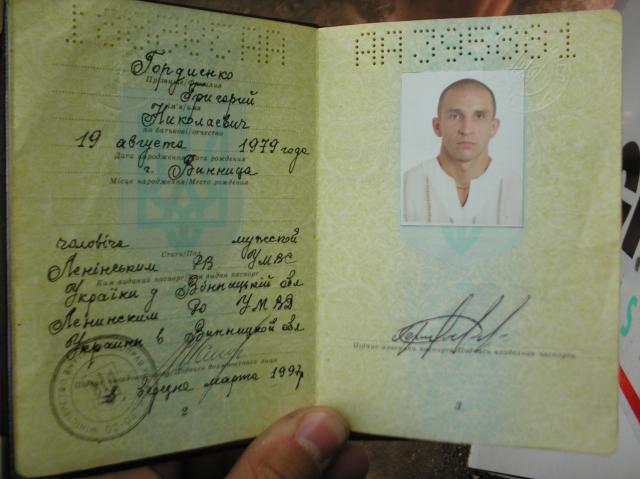 АА 395861
Гордиенко
Прізвище/Фамилия
Григорий
Ім'я/имя
Николаевич
по батькові/отчество
19 августа 1979 года
Дата народження/Дата рождения
г. Винница
Місце народження/Место рождения
чоловіча мужской
Стать/Пол
Ленінським РВ УМВС
Ким виданий паспорт/Кем выдан паспорт
України у Вінницькій обл
Ленинским РО УМВД
Украины в Винницкой обл
марта 1997р
2
АА 395861
Підпис власника паспорта/Подпись владельца паспорта
3